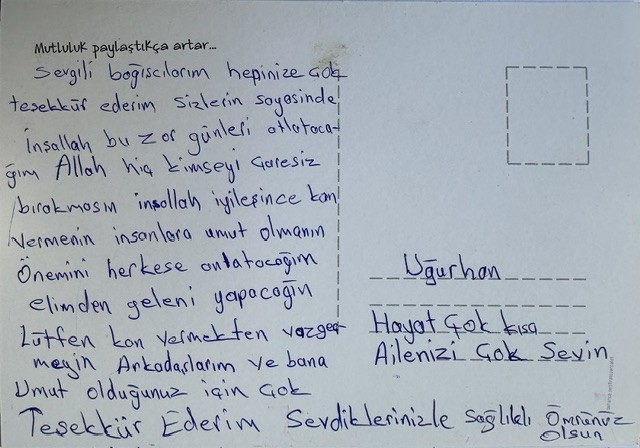 Mutluluk paylaştıkça artar...
Sevgili bağışcılarım hepinize çok
teşekkür ederim sizlerin sayesinde
İnşallah bu zor günleri atlataca-
ğım Allah hiç kimseyi çaresiz
bırakmasın inşallah iyileşince kan
vermenin insanlara umut olmanın
Önemini herkese anlatacağım
elimden geleni yapacağın
Lütfen kan vermekten vazgeç
meyin Arkadaşlarım ve bana
Umut olduğunuz için çok
Teşekkür Ederim Sevdiklerinizle sağlıklı Ömrünüz
olsun
Uğurhan
Hayat Çok kısa
Ailenizi Çok Sevin